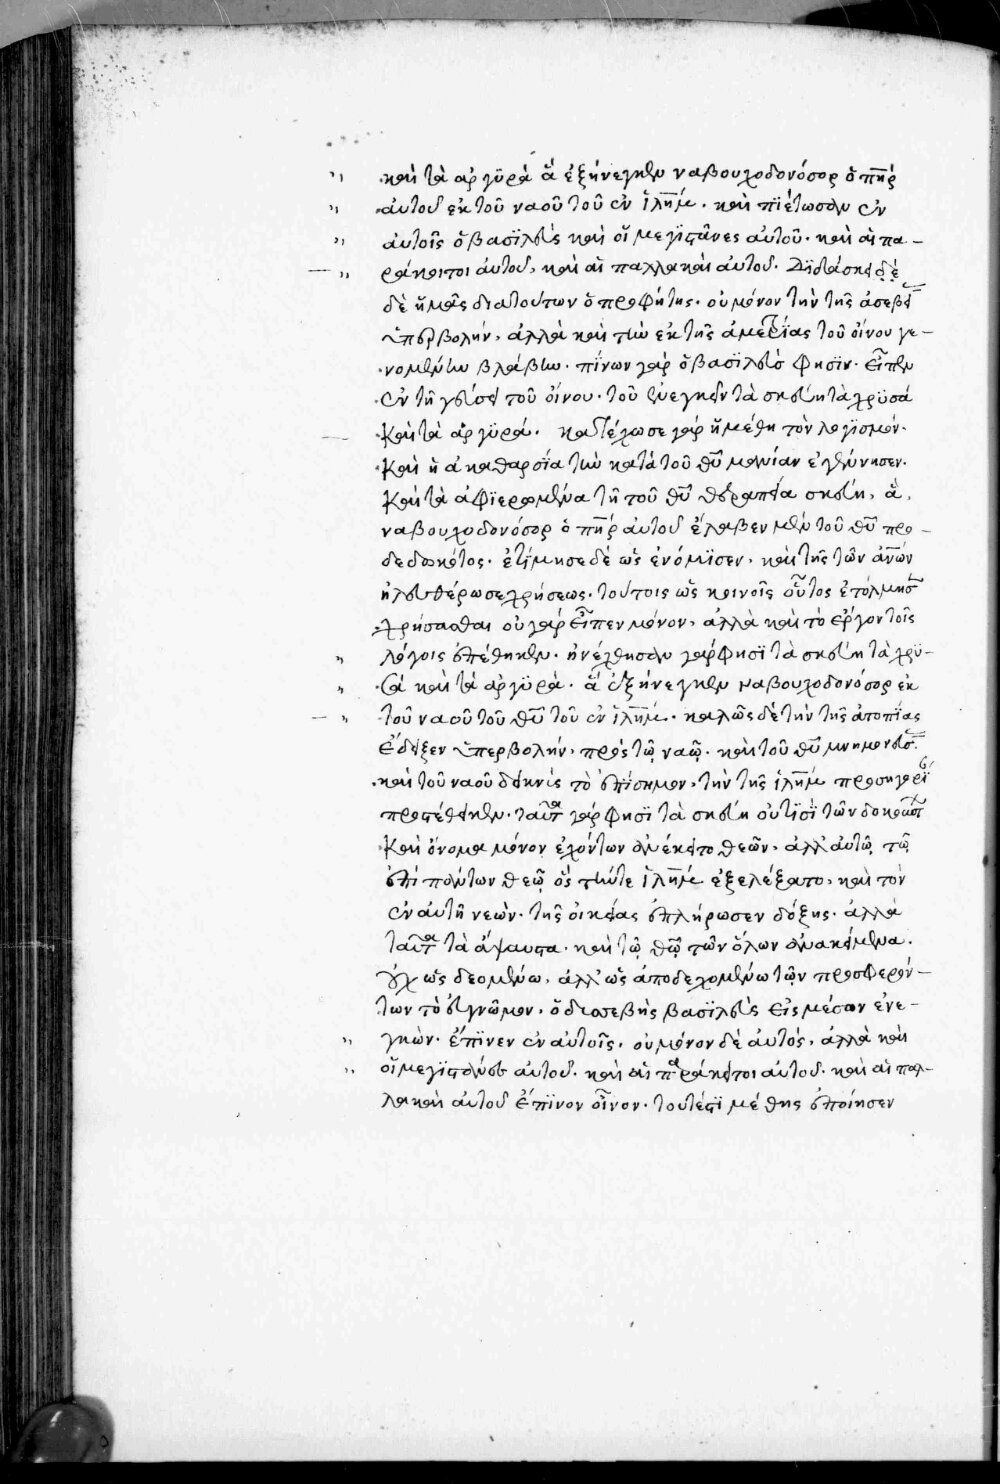 καὶ τὰ ἀργϋρᾶ ἃ ἐξήνεγκεν ναβουχοδονόσορ ὁ πη̅ρ
αὐτοῦ ἐκ τοῦ ναοῦ τοῦ ἐν ἰλη̅μ· καὶ πϊέτωσαν ἐν
αὐτοῖς ὁ βασϊλεὺς καὶ οἱ μεγϊστᾶνες αὐτοῦ· καὶ αἱ πα–
ράκοιτοι αὐτοῦ, καὶ αἱ παλλακαὶ αὐτοῦ. Διδάσκει δὲ
δὲ ἡμᾶς διὰ τούτων ὁ προφήτης· οὐ μόνον τὴν τῆς ἀσεβεί
ὑπερβολήν, ἀλλὰ καὶ τὴν ἐκ τῆς ἀμετρίας τοῦ οἴνου γε–
νομένην βλάβην· πίνων γὰρ ὁ βασϊλεὺς φησϊν· εἶπεν
ἐν τῇ γεύσει τοῦ οἴνου· τοῦ ἐνεγκεῖν τὰ σκεύη τὰ χρϋσᾶ
καὶ τὰ ἀργϋρᾶ. κατέχωσε γὰρ ἡ μέθη τὸν λογϊσμόν·
καὶ ἡ ἀκαθαρσία τὴν κατὰ τοῦ θυ̅ μανίαν ἐγέννησεν.
καὶ τὰ ἀφϊερωμένα τῇ τοῦ θυ̅ θεραπεία σκεύη, ἃ,
ναβουχοδονόσορ ὁ πη̅ρ αὐτοῦ ἔλαβεν μὲν τοῦ θυ̅ προ–
δεδωκότος· ἐτίμησε δὲ ὡς ἐνόμϊσεν, καὶ τῆς τῶν ἀν̅ων
ἠλευθέρωσε χρήσεως· τούτοις ὡς κοινοῖς οὗτος ἐτόλμησ
χρήσασθαι οὐ γὰρ εἶπεν μόνον, ἀλλὰ καὶ τὸ ἔργον τοῖς
λόγοις ἐπέθηκεν. ἠνέχθησαν γὰρ φησὶ τὰ σκεύη τὰ χρϋ–
σᾶ καὶ τὰ ἀργϋρᾶ· ἃ ἐξήνεγκεν ναβουχοδονόσορ ἐκ
τοῦ ναοῦ τοῦ θυ̅ τοῦ ἐν ἰλη̅μ. καλῶς δὲ τὴν τῆς ἀτοπίας
ἔδειξεν ὑπερβολήν, πρὸς τῷ ναῷ· καὶ τοῦ θυ̅ μνημονεύσ
καὶ τοῦ ναοῦ δεικνὺς τὸ ἐπίσημον, τὴν τῆς ἰλη̅μ προσηγορί
προστέθεικεν· ταῦτα γὰρ φησὶ τὰ σκεύη οὐ τισὶ τῶν δοκούντ
καὶ ὄνομα μόνον ἐχόντων ἀνέκειτο θεῶν, ἀλλ' αὐτῷ τῷ
ἐπὶ πάντων θεῷ ὃς τήν τε ἰλη̅μ ἐξελέξατο, καὶ τὸν
ἐν αὐτῇ νεὼν· τῆς οἰκείας ἐπλήρωσεν δόξης· ἀλλὰ
ταῦτα τὰ ἄψαυστα· καὶ τῷ θω̅ τῶν ὅλων ἀνακείμενα.
οὐχ ὡς δεομένω, ἀλλ' ὡς ἀποδεχομένω τῶν προσφερόν–
των τὸ εὔγνωμον, ὁ δυσσεβὴς βασϊλεὺς εἰς μέσον ἐνε–
γκὼν· ἔπϊνεν ἐν αὐτοῖς, οὐ μόνον δὲ αὐτός, ἀλλὰ καὶ
οἱ μεγϊστᾶνες αὐτοῦ. καὶ αἱ παράκοιτοι αὐτοῦ. καὶ αἱ παλ–
λακαὶ αὐτοῦ ἔπϊνον οἶνον· τουτέστϊ μέθης ἐποίησεν